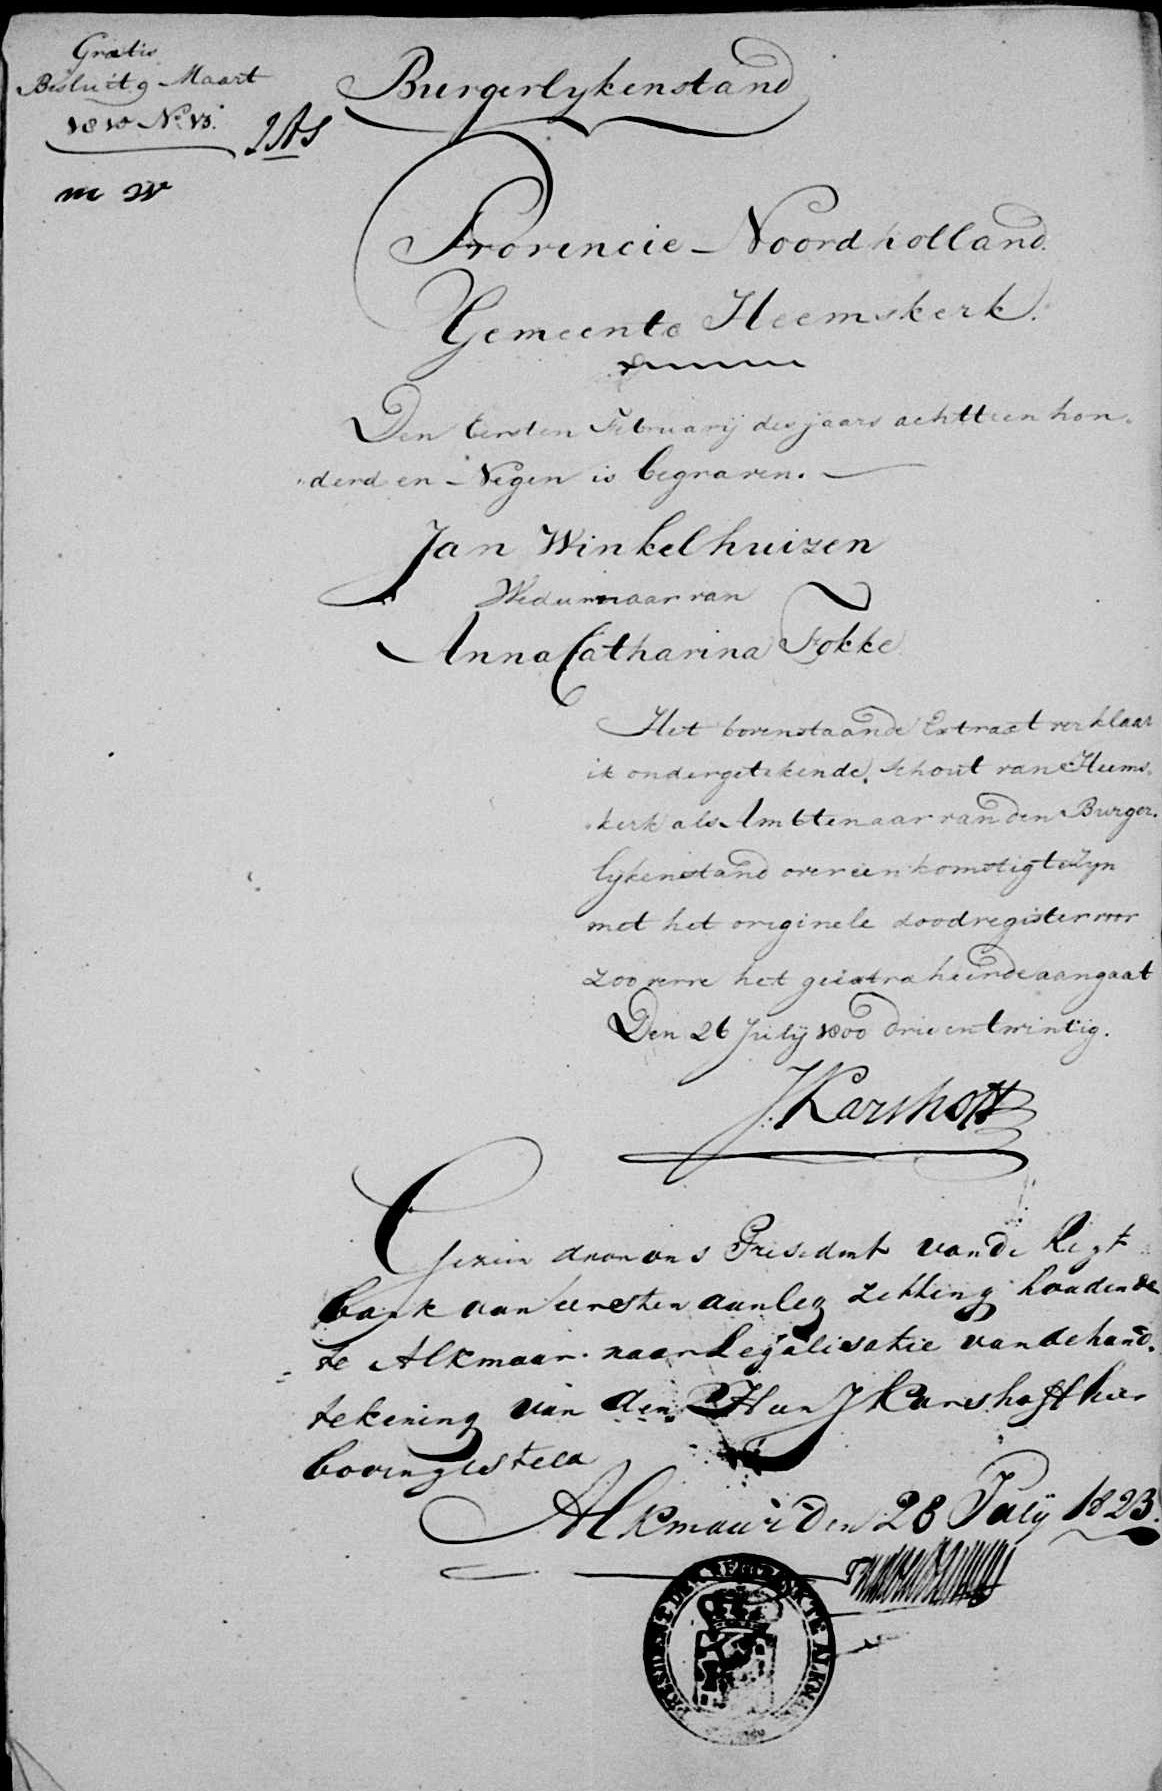 Gratis
Besluit 9 Maart
1810 No 13.
Burgerlykenstand
Provincie Noordholland.
Gemeente Heemskerk.
Den Eersten Februarij des jaars achttien hon„
„derd en Negen is begraven.
Jan Winkelhuizen
Weduwnaar van
Anna Catharina Fokke
Het bovenstaande Extract verklaar
ik ondergetekende, Schout van Heems„
„kerk als Ambtenaar van den Burger„
lykenstand overeenkomstig te Zyn
met het originele doodregister voor
zooverre het geëxtraheerde aangaat
Den 26 Julij 1800 drie en twintig.
J. Karshoff
Gezien door ons President van de Regt
bank van eersten aanleg zitting houdende
te Alkmaar voor Legalisatie van de hand„
tekening van den Heer J Karshoff hier
boven gesteld
Alkmaar den 28 Julij 1823.
PRESIDENT DER REGTBANK TE ALKM